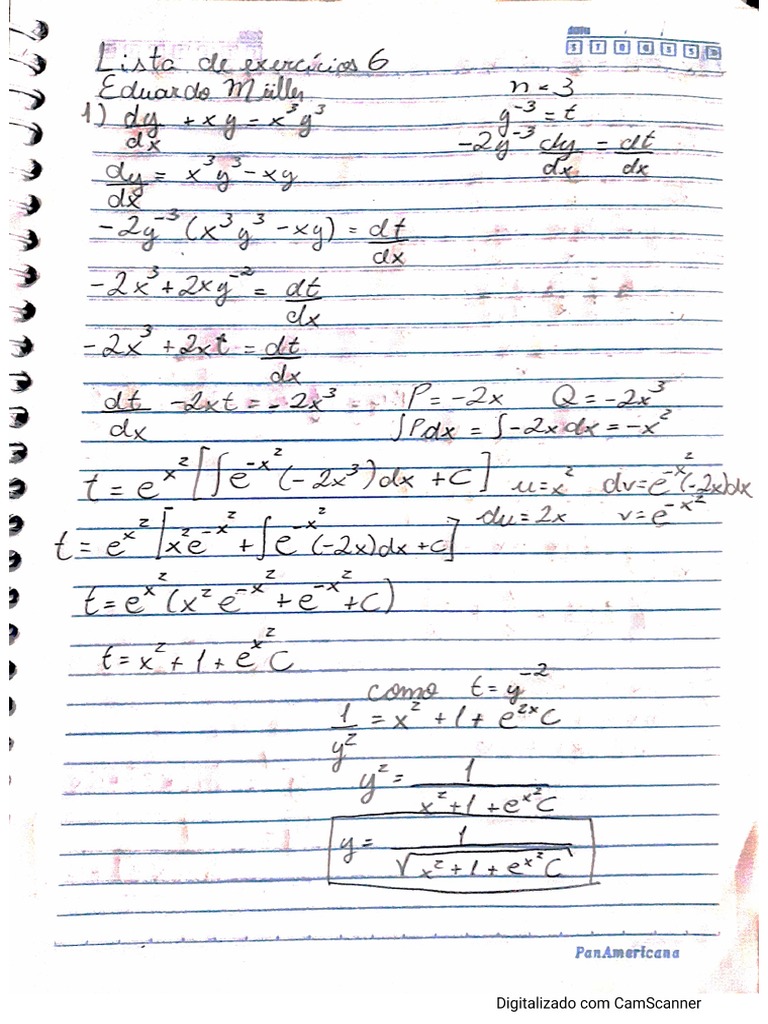 Lista de exercícios 6
Eduardo Müller
n = 3
1) dy/dx + xy = x³y³
y⁻³ = t
-2y⁻³ dy/dx = dt/dx
dy/dx = x³y³ - xy
-2y⁻³ (x³y³ - xy) = dt/dx
-2x³ + 2xy⁻² = dt/dx
-2x³ + 2xt = dt/dx
dt/dx - 2xt = -2x³ P = -2x Q = -2x³
∫Pdx = ∫-2xdx = -x²
t = e^x² [∫e^-x² (-2x³)dx + C] u = x² dv = e^-x² (-2x)dx
du = 2x v = e^-x²
t = e^x² [x²e^-x² + ∫e^-x² (-2x)dx + C]
t = e^x² (x² e^-x² + e^-x² + C)
t = x² + 1 + e^x² C
como t = y⁻²
1/y² = x² + 1 + e^2x C
y² = 1/(x² + 1 + e^x² C)
y = 1/√(x² + 1 + e^x² C)
PanAmericana
Digitalizado com CamScanner